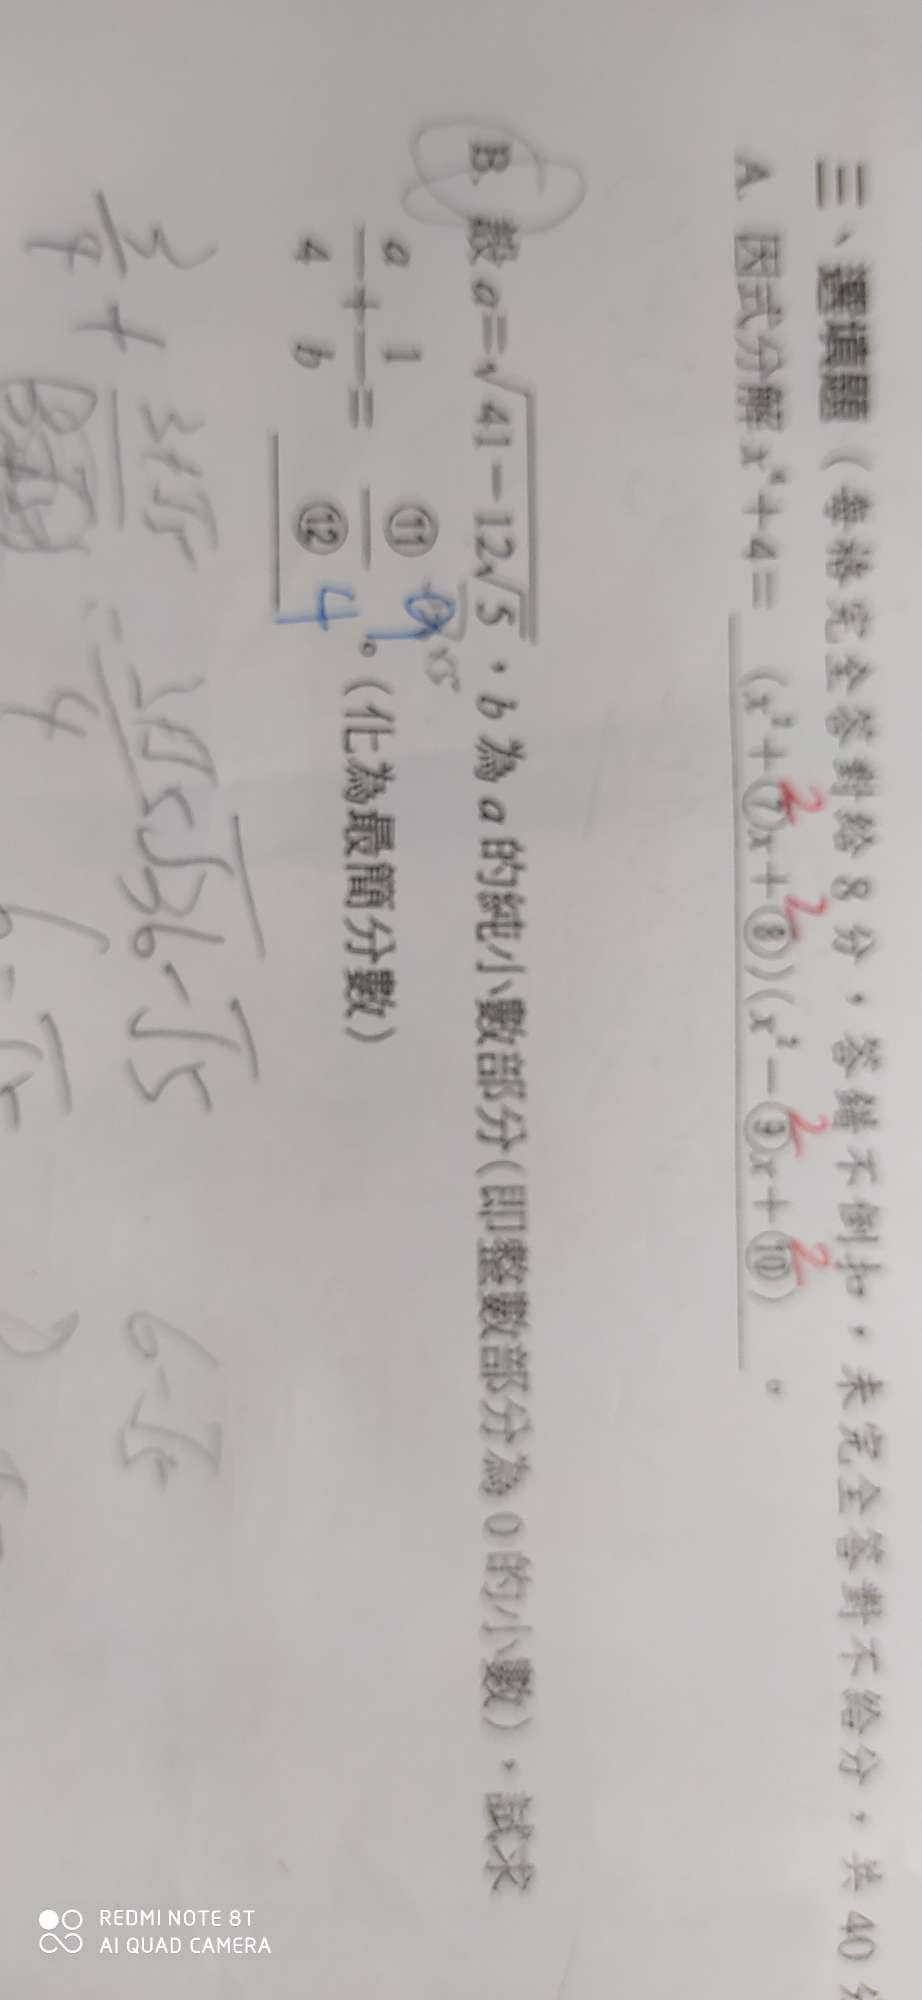 三、選填題（每格完全答對給 8 分，答錯不倒扣，未完全答對不給分，共 40 分
A. 因式分解 x⁴+4= (x²+⑦x+⑧)(x²-⑨x+⑩) 。
2 2 2 2
B. 設 a=√(41-12√5)，b 為 a 的純小數部分(即整數部分為 0 的小數)，試求
a/4 + 1/b = ⑪/⑫ 。(化為最簡分數)
9
4
√36-√5
6-√5
3/4 +
3+√5
4
REDMI NOTE 8T
AI QUAD CAMERA